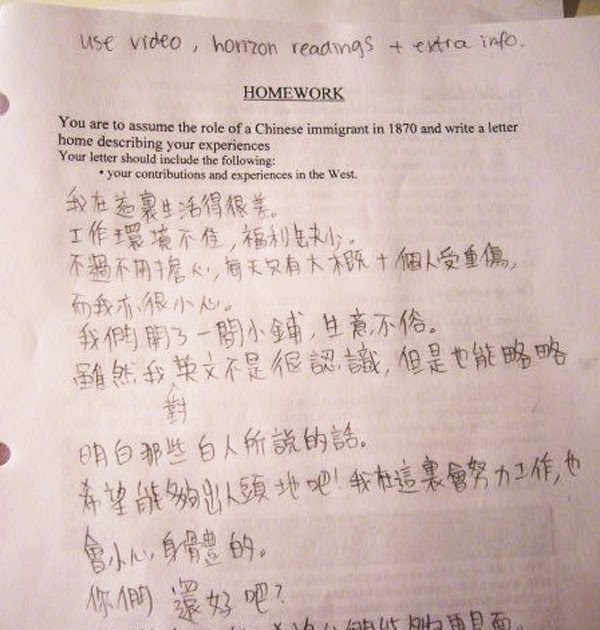 use video, horizon readings + extra info.
HOMEWORK
You are to assume the role of a Chinese immigrant in 1870 and write a letter
home describing your experiences
Your letter should include the following:
• your contributions and experiences in the West.
我在這裏生活得很差。
工作環境不佳,福利缺少。
不過不用擔心,每天只有大概十個人受重傷,
而我亦很小心。
我們開了一間小鋪,生意不俗。
雖然我英文不是很認識,但是也能略略
對
明白那些白人所説的話。
希望能夠出人頭地吧!我在這裏會努力工作,也
會小心身體的。
你們還好吧?
能夠再見面。